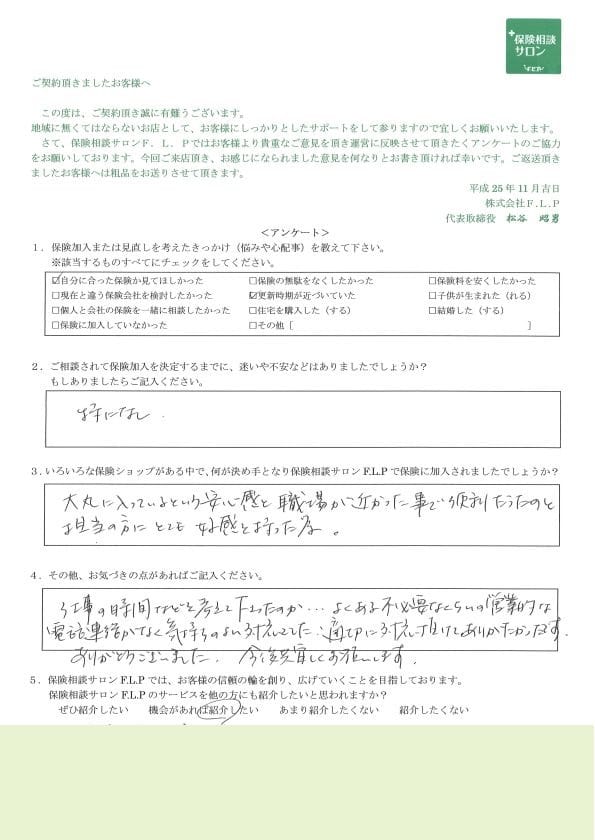 +保険相談
サロン
ご契約頂きましたお客様へ
この度は、ご契約頂き誠に有難うございます。
地域に無くてはならないお店として、お客様にしっかりとしたサポートをして参りますので宜しくお願いいたします。
さて、保険相談サロンF．L．Pではお客様より貴重なご意見を頂き運営に反映させて頂きたくアンケートのご協力
をお願いしております。今回ご来店頂き、お感じになられました意見を何なりとお書き頂ければ幸いです。ご返送頂き
ましたお客様へは粗品をお送りさせて頂きます。
平成25年11月吉日
株式会社F.L.P
代表取締役 松谷 昭男
＜アンケート＞
１．保険加入または見直しを考えたきっかけ（悩みや心配事）を教えて下さい。
※該当するものすべてにチェックをしてください。
☑自分に合った保険か見てほしかった □保険の無駄をなくしたかった □保険料を安くしたかった
□現在と違う保険会社を検討したかった ☑更新時期が近づいていた □子供が生まれた（れる）
□個人と会社の保険を一緒に相談したかった □住宅を購入した（する） □結婚した（する）
□保険に加入していなかった □その他［ ］
２．ご相談されて保険加入を決定するまでに、迷いや不安などはありましたでしょうか？
もしありましたらご記入ください。
特になし．
３．いろいろな保険ショップがある中で、何が決め手となり保険相談サロンF.L.Pで保険に加入されましたでしょうか？
大丸に入っているという安心感と職場が近かった事で便利だったのと
担当の方にとても好感を持った為。
４．その他、お気づきの点があればご記入ください。
仕事の時間などを考えて下さったのか…よくある不必要なくらいの営業的な
電話連絡がなく気持ちのよい対応でした．適切に対応して頂けてありがたかったです．
ありがとうございました．今後共宜しくお願いします．
５．保険相談サロンF.L.Pでは、お客様の信頼の輪を創り、広げていくことを目指しております。
保険相談サロンF.L.Pのサービスを他の方にも紹介したいと思われますか？
ぜひ紹介したい 機会があれば紹介したい あまり紹介したくない 紹介したくない